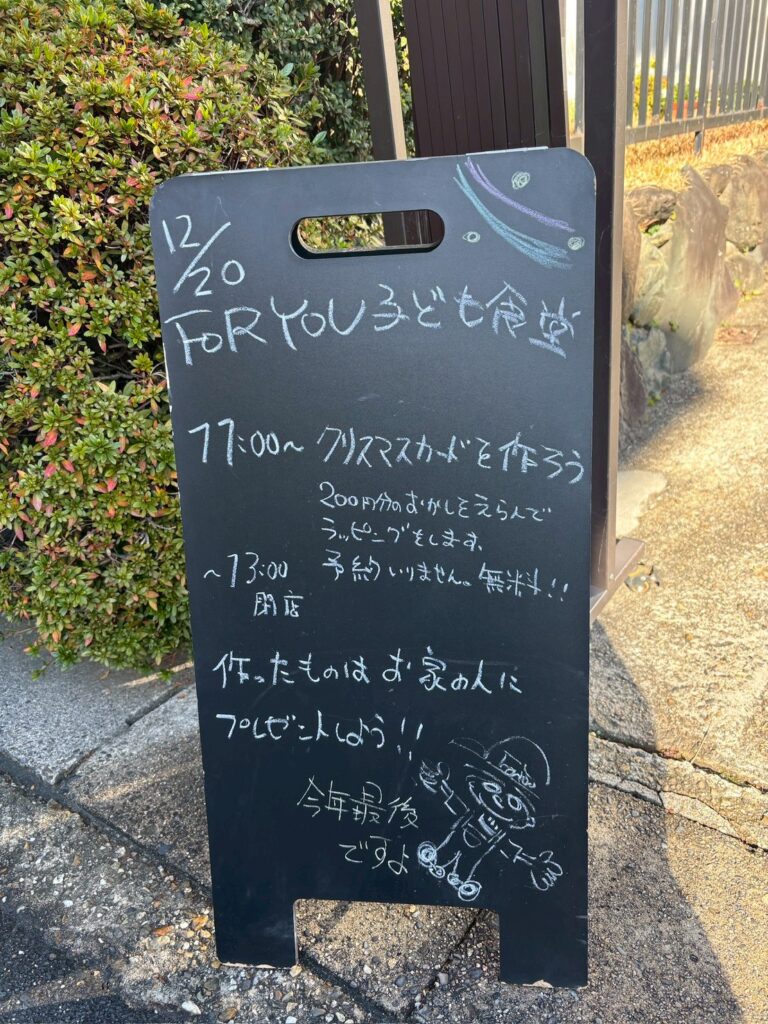 12/20
FOR YOU 子ども食堂
11:00~ クリスマスカードを作ろう
200円分のおかしをえらんで
ラッピングをします。
~13:00 予約いりません。無料!!
閉店
作ったものは お家の人に
プレゼントしよう!!
今年最後
ですよ